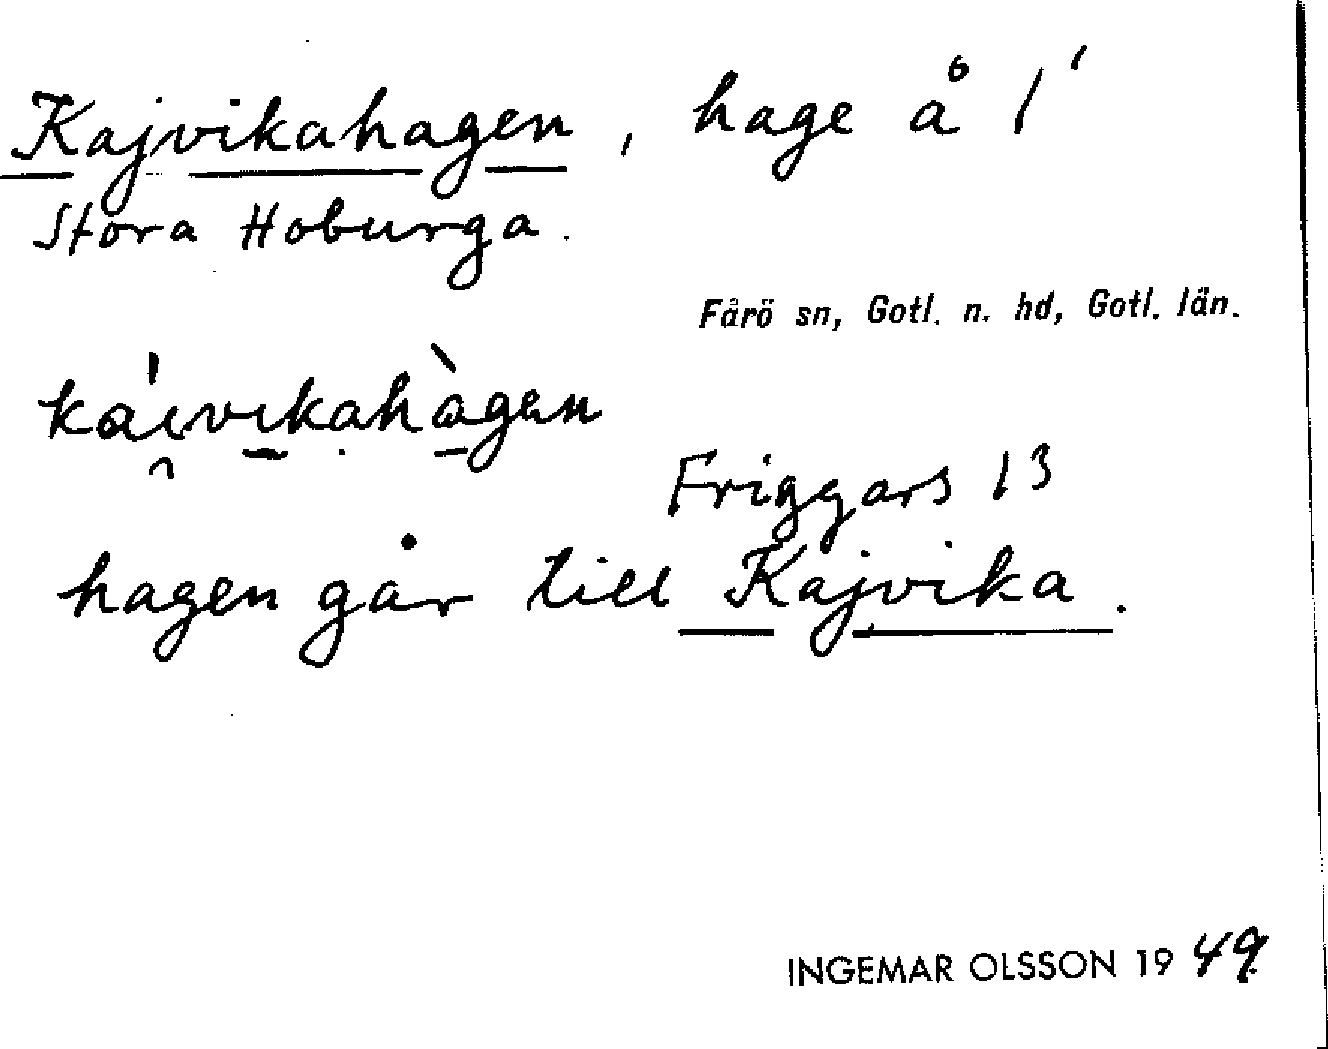 Kajvikahagen, hage å 1'
Stora Hoburga.
Fårö sn, Gotl. n. hd, Gotl. län.
káιvιkahàgen
Friggars 13
hagen går till Kajvika.
INGEMAR OLSSON 1949